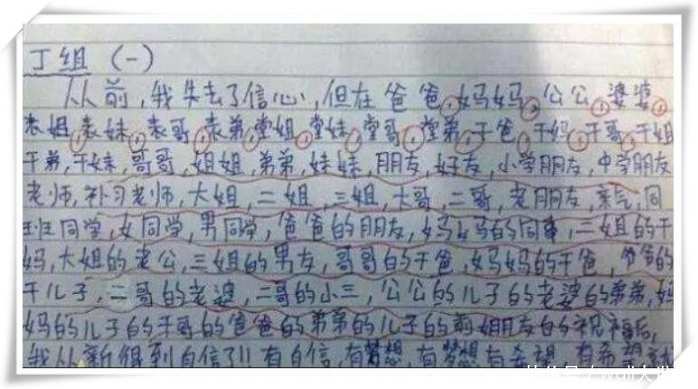 丁组 (一)
从前,我失去了信心,但在爸爸,妈妈,公公,婆婆,
表姐,表妹,表哥,表弟,堂姐,堂妹,堂哥,堂弟,干爸,干妈,干哥,干姐
干弟,干妹,哥哥,姐姐,弟弟,妹妹,朋友,好友,小学朋友,中学朋友
老师,补习老师,大姐,二姐,三姐,大哥,二哥,老朋友,同
班同学,女同学,男同学,爸爸的朋友,妈妈的同事,三姐的干
妈,大姐的老公,三姐的男友,哥哥的干爸,妈妈的干爸,爷爷的
干儿子,二哥的老婆,二哥的小三,公公的儿子的老婆的弟弟,妈
妈的儿子的干哥的爸爸的弟弟的儿子的前女朋友的祝福后,
我从新得到自信了!!有自信,有梦想,有梦想有希望,有希望就